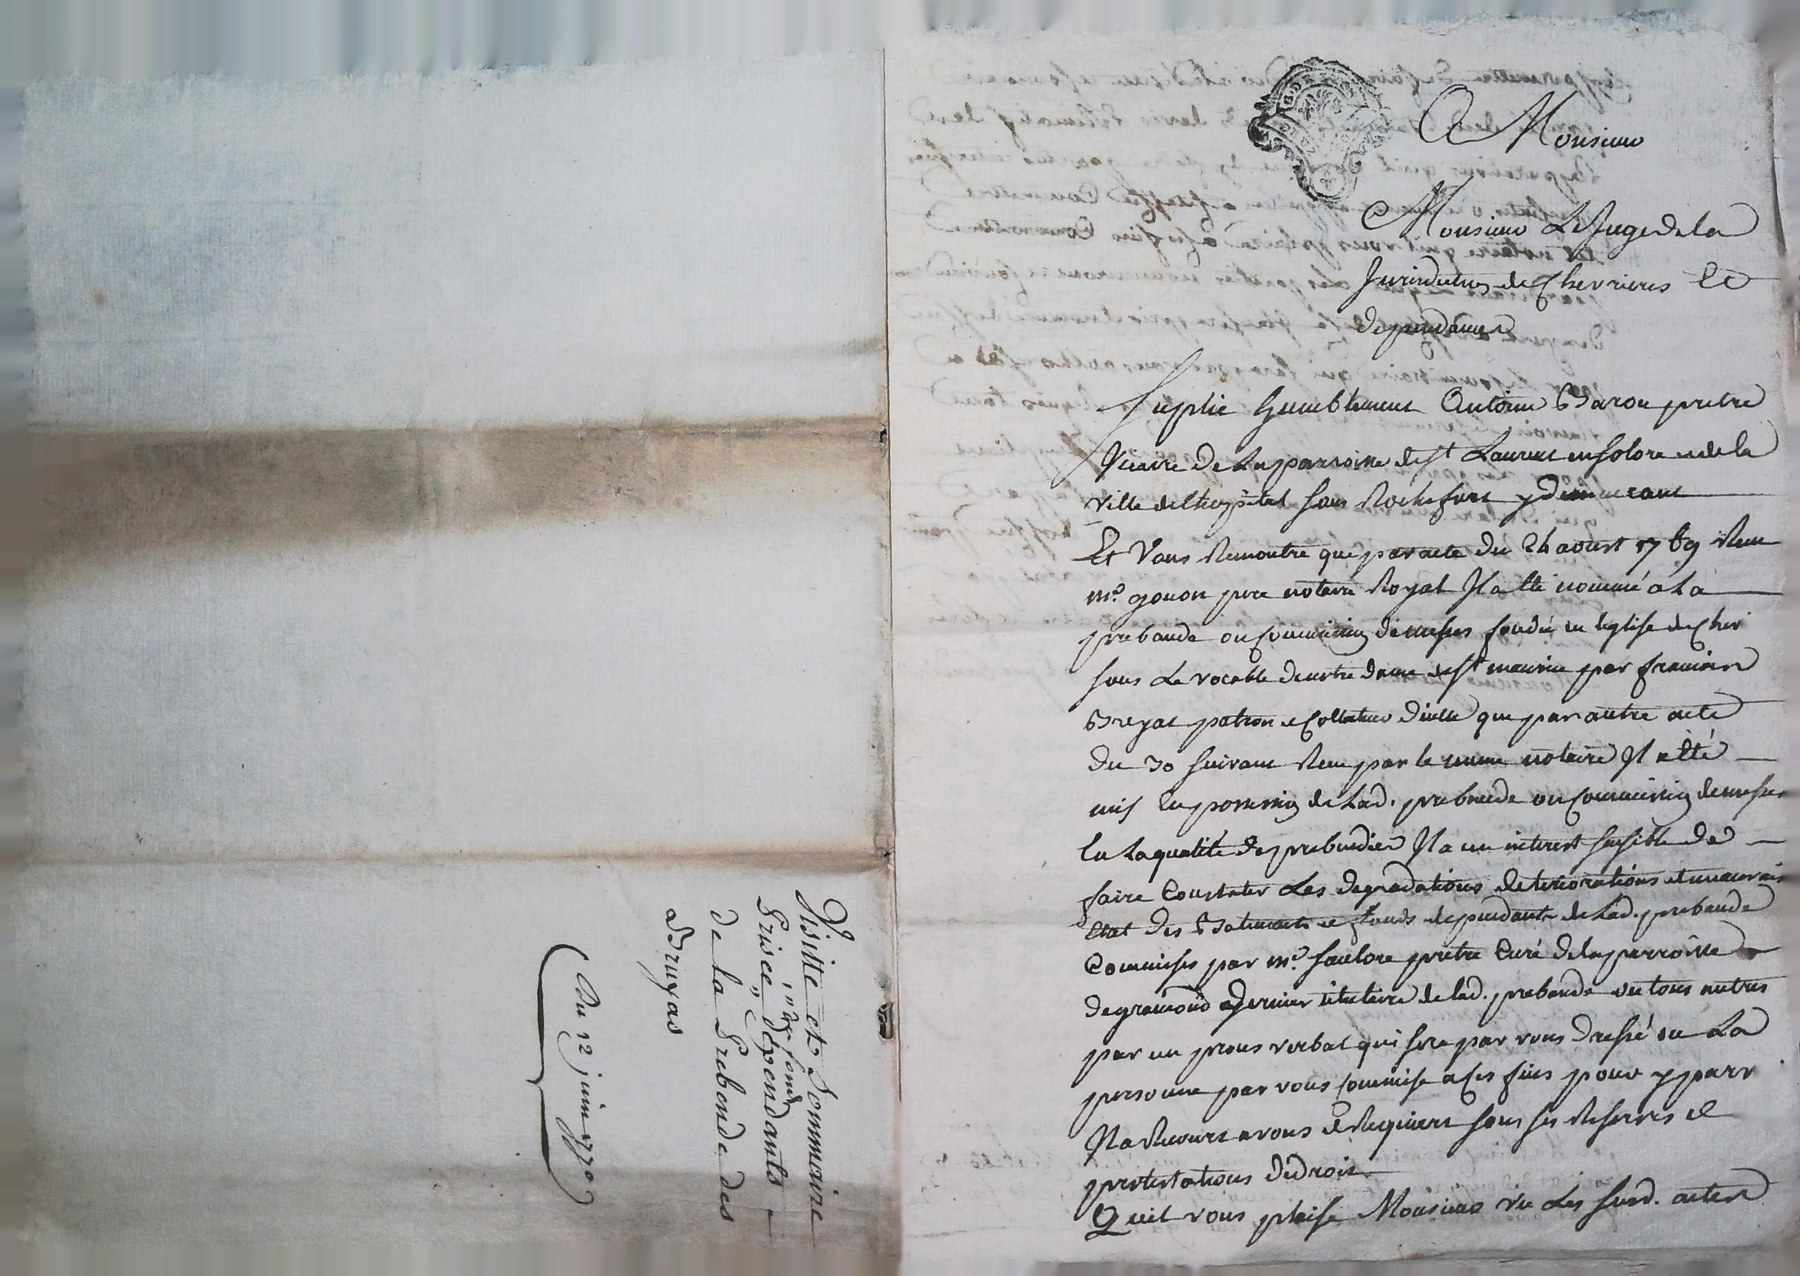 Visitte et Sommaire
Prisée des fonds dépendants
de la Prebende des
Bruyas
Du 12 juin 1770
A Monsieur
Monsieur Le Juge de la
Jurisdiction de Chevrieres et
dependances
Suplie humblement Antoine Baron pretre
Vicaire de la parroisse de st Laurent en Solore et de la
ville de l'hopital sous Rochefort y demeurant
Et Vous Remontre que par acte du 24 aoust 1769 Reçu
me. gonon pere notaire Royal Il a été nommé a La
prebande ou Commission de messes fondée en leglise de Chev
sous Le vocable de notre dame et st maurice par francois
Breyat patron et Collateur dicelle que par autre acte
du 30 suivant Reçu par le meme notaire Il a été
mis en possession de Lad. prebende ou Commission de messes
En La qualité de prebendier Il a un interest sensible de
faire Constater Les degradations deteriorations et mauvais
Etat des Batiments et fonds dependants de Lad. prebande
Commises par me. pretre Curé de la parroisse
de dernier titulaire de lad. prebande ou tous autres
par un proces verbal qui sera par vous dressé ou La
personne par vous Commise a Ces fins pour y parv
Il a Recours a vous et Requiert sous ses Reserves et
protestations de droit
Quil vous plaise Monsieur vu Les susd. actes